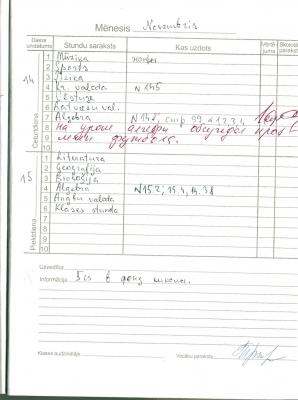 Mēnesis Novembris
Diena un datums Stundu saraksts Kas uzdots Vērtējums Skolotāja paraksts
14 Ceturtdiena
1 Mūzika
2 Sports
3 Fizika
4 Kr. valoda N 145
5 Vēsture
6 Latviešu val.
7 Algebra N 148, стр 99
8 на уроке алгебры обсуждал проб-
9 лемы футбола.
10
15 Piektdiena
1 Literatūra
2 Ģeogrāfija
3 Bioloģija
4 Algebra N 152; 15.4,
5 Angļu valoda
6 Klases stunda
7
8
9
10
Uzvedība
Informācija 5 Ls в фонд школы.
Klases audzinātājs Vecāku paraksts